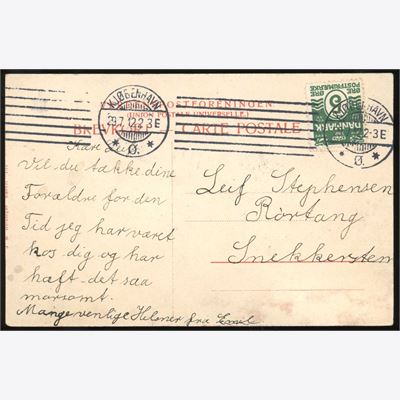 KJØBENHAVN
29.7.12.2-3E
* Ø. *
POSTFORENINGEN
(UNION POSTALE UNIVERSELLE.)
CARTE POSTALE
ØRE 3 ØRE
POSTFRIMÆRKE
DANMARK
KJØBENHAVN
12.2-3E
* Ø. *
Kære Leif
Vil du takke dine
Forældre for den
Tid jeg har været
hos dig og har
haft det saa
morsomt.
Mange venlige Hilsner fra Emil
Leif Stephensen
Rörtang
Snekkersten